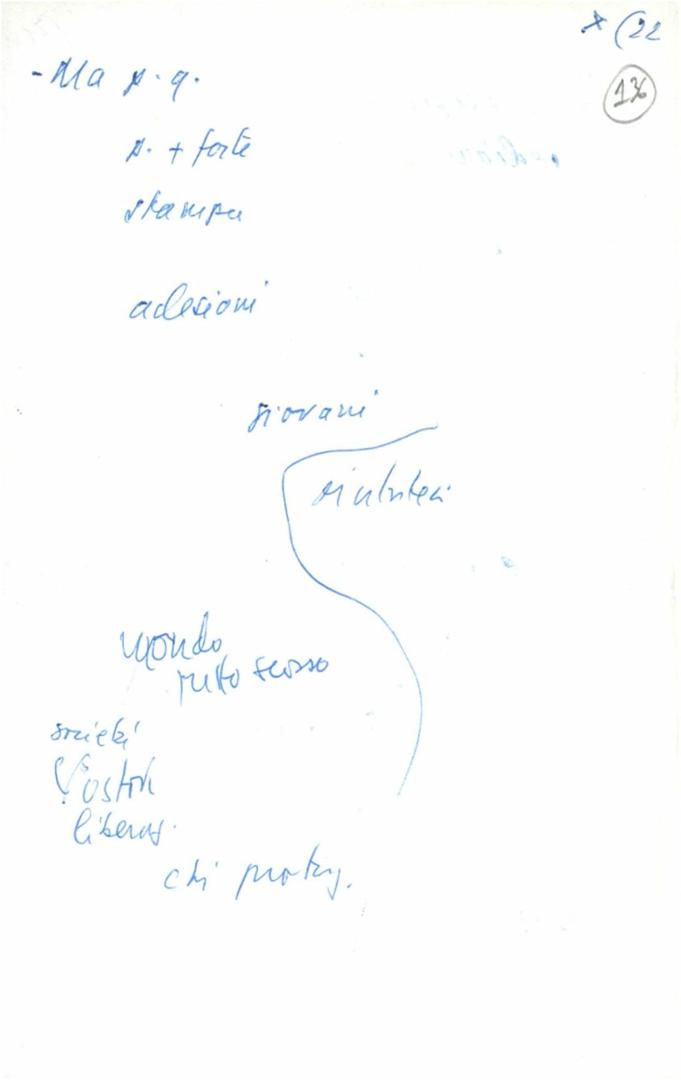 * (22
136
- Ma p. q.
p. + forte
stampa
adesioni
giovani
mondo
tutto scosso
società
liberaz.
chi protag.